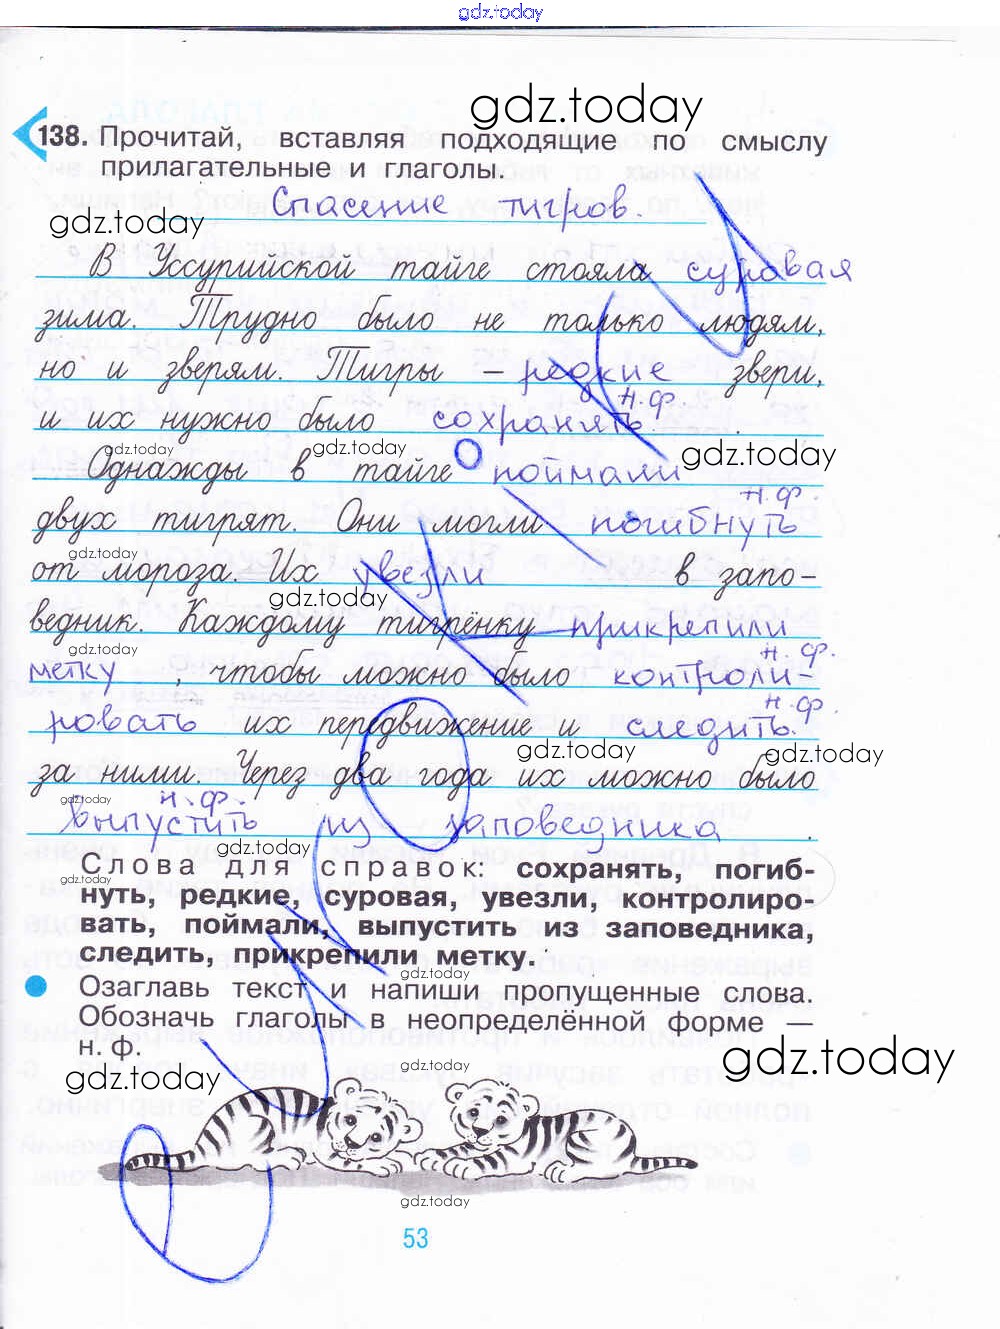 gdz.today
gdz.today
138. Прочитай, вставляя подходящие по смыслу
прилагательные и глаголы.
Спасение тигров.
gdz.today
В Уссурийской тайге стояла суровая
зима. Трудно было не только людям,
но и зверям. Тигры – редкие звери,
н.ф.
и их нужно было сохранять.
gdz.today gdz.today gdz.today
Однажды в тайге поймали
н.ф.
двух тигрят. Они могли погибнуть
gdz.today
от мороза. Их увезли в запо-
gdz.today
ведник. Каждому тигрёнку прикрепили
gdz.today н.ф.
метку, чтобы можно было контроли-
н.ф.
ровать их передвижение и следить
gdz.today gdz.today
за ними. Через два года их можно было
gdz.today н.ф.
выпустить из заповедника.
gdz.today
Слова для справок: сохранять, погиб-
gdz.today
нуть, редкие, суровая, увезли, контролиро-
вать, поймали, выпустить из заповедника,
следить, прикрепили метку.
gdz.today
Озаглавь текст и напиши пропущенные слова.
Обозначь глаголы в неопределённой форме —
н. ф.
gdz.today
gdz.today gdz.today
gdz.today
gdz.today
53